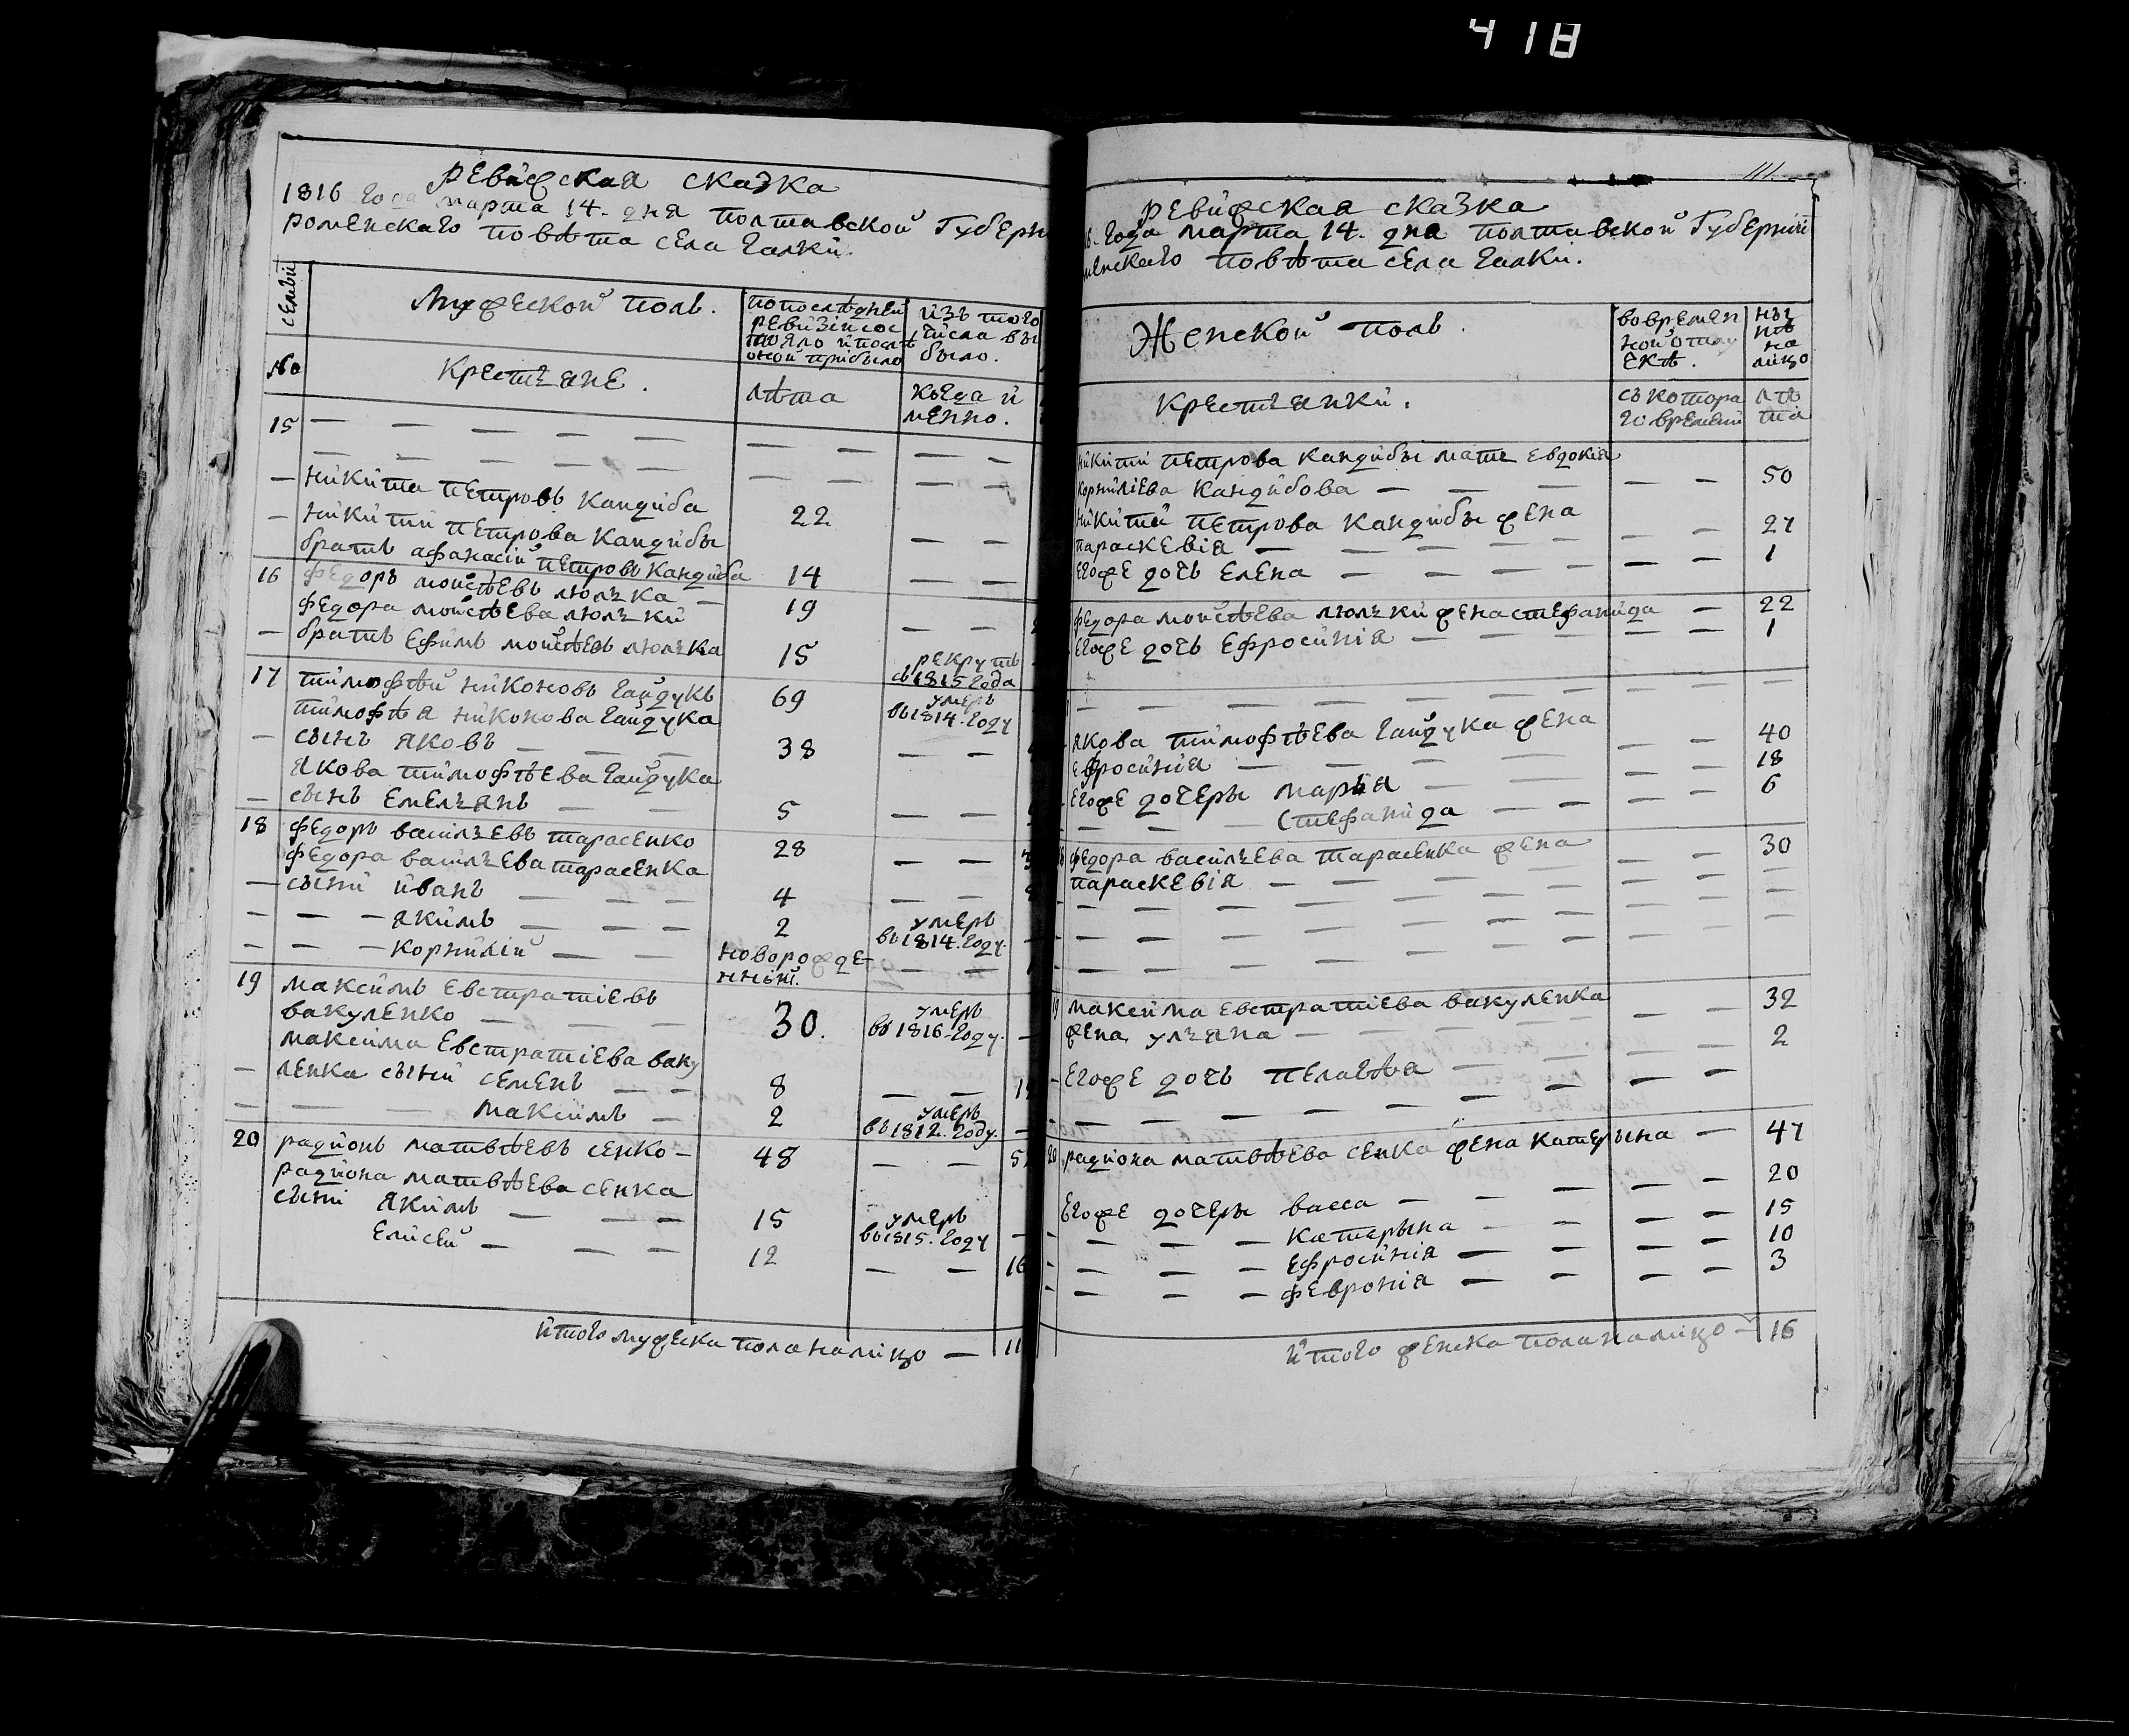 418
ревижская сказка
1816 года марта 14. дня полтавской Губерн
роменскаго повѣта села галки.
семьи
Мужеской полъ.
попослѣдней
ревизіи сос
тояло и посл
оной прибыло
изъ того
числа вы
было.
№
Крестьяне.
лѣта
когда и
менно.
15 — — — — —
— никита петровъ Кандиба 22 — —
— никити петрова Кандибы
братъ афанасій петровъ Кандиба 14 — —
16 федоръ моисѣевъ люлька — 19 — —
федора моисѣева люльки
— братъ Ефимъ моисѣевъ люлька 15 рекрутъ
съ 1815 года
17 тимофѣй никоновъ гайдукъ 69 умеръ
въ 1814. году
тимофѣя никонова гайдука
— сынъ яковъ — — — 38 — —
якова тимофѣева гайдука
— сынъ Емельянъ — — 5 — —
18 федоръ васильевъ тарасенко 28 — — 3
федора васильева тарасенка
— сыны иванъ — — — 4 — —
— — — якимъ — — — 2 умеръ
въ 1814. году.
— — — корнилій — — новорожде-
нный. — —
19 максимъ Евстратіевъ
вакуленко — — — 30. умеръ
въ 1816. году. —
максима Евстратіева ваку
— ленка сыны семенъ — — 8 — — 1
— — — максимъ — 2 умеръ
въ 1812. году. —
20 радионъ матвѣевъ сенко — 48 — — 5
радиона матвѣева сенка
сыны якимъ — — — 15 умеръ
въ 1815. году —
Елисей — — — 12 — — 16
итого мужеска пола налицо — 11
111.
ревижская сказка
6. года марта 14. дня полтавской Губерний
менскаго повѣта села галки.
Женской полъ.
вовремен
ной отлу
екѣ.
ны
нѣ
на
лицо
Крестьянки.
съ котора
го времени
лѣ
та
никити петрова Кандибы мать евдокія
корнилієва Кандибова — — — — — 50
никити петрова Кандибы жена
параскевія — — — — — — — 27
егоже дочь елена — — — — — — 1
федора моисѣева люльки жена стефанида — 22
егоже дочь ефросинія — — — — — — 1
— — — — — — — — —
якова тимофѣева гайдука жена
евросинія — — — — — — 40
егоже дочеры марья — — — — 18
— — — Стефанида — — — — 6
федора васильева тарасенка жена
параскевія — — — — — — — 30
— — — — — — — — —
— — — — — — — — —
— — — — — — — — —
19 максима евстратіева вакуленка
жена ульяна — — — — — — 32
— Егоже дочь пелагѣа — — — — 2
— — — — — — — — —
20 радиона матвѣева сенка жена катерына — 47
Егоже дочеры васса — — — — — 20
— — — — Катерына — — — — 15
— — — — ефросинія — — — — 10
— — — — февронія — — — — 3
итого женска пола налицо — 16